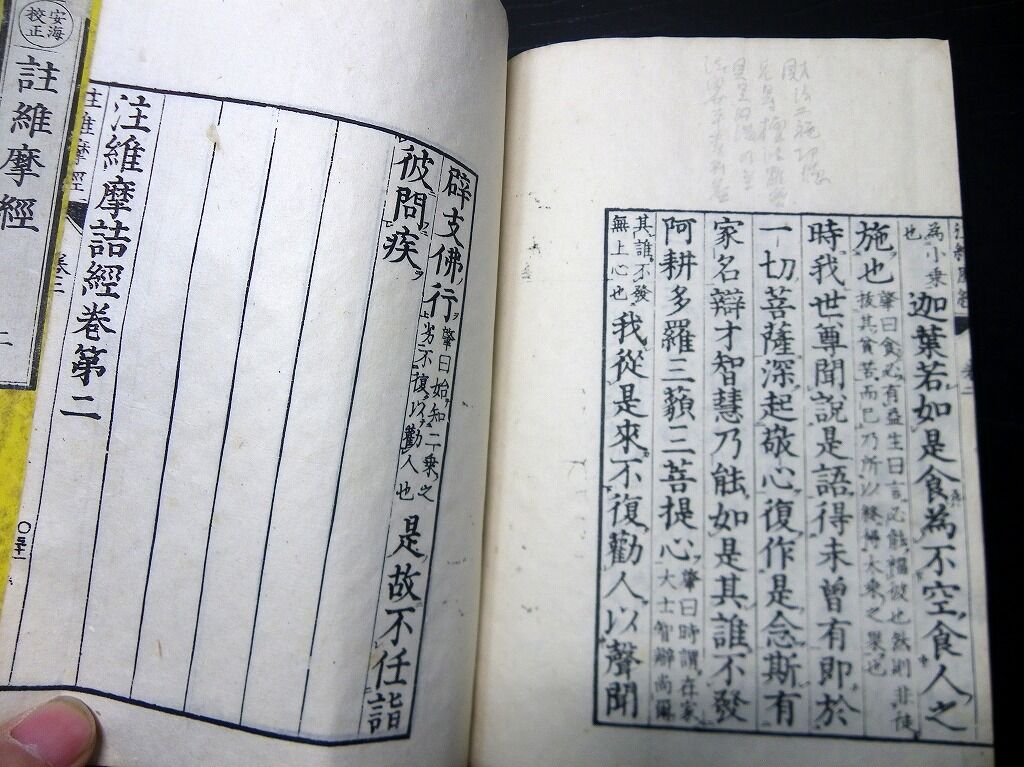 為小乘
也
迦葉若如是食為不空食人之
施也
肇曰食必有益生曰言必能福彼也然則非徒
拔其貧苦而已乃所以終得大乘之果也
時我世尊聞說是語得未曾有即於
一切菩薩深起敬心復作是念斯有
家名辯才智慧乃能如是其誰不發
阿耨多羅三藐三菩提心
肇曰時謂在家
大士智辯尚爾
其誰不發
無上心也
我從是來不復勸人以聲聞
辟支佛行
肇曰始知二乘之
劣不復以勸人也
是故不任詣
彼問疾
注維摩詰經卷第二
註維摩經
卷二
○五十一
安海
校正
註維摩經
二